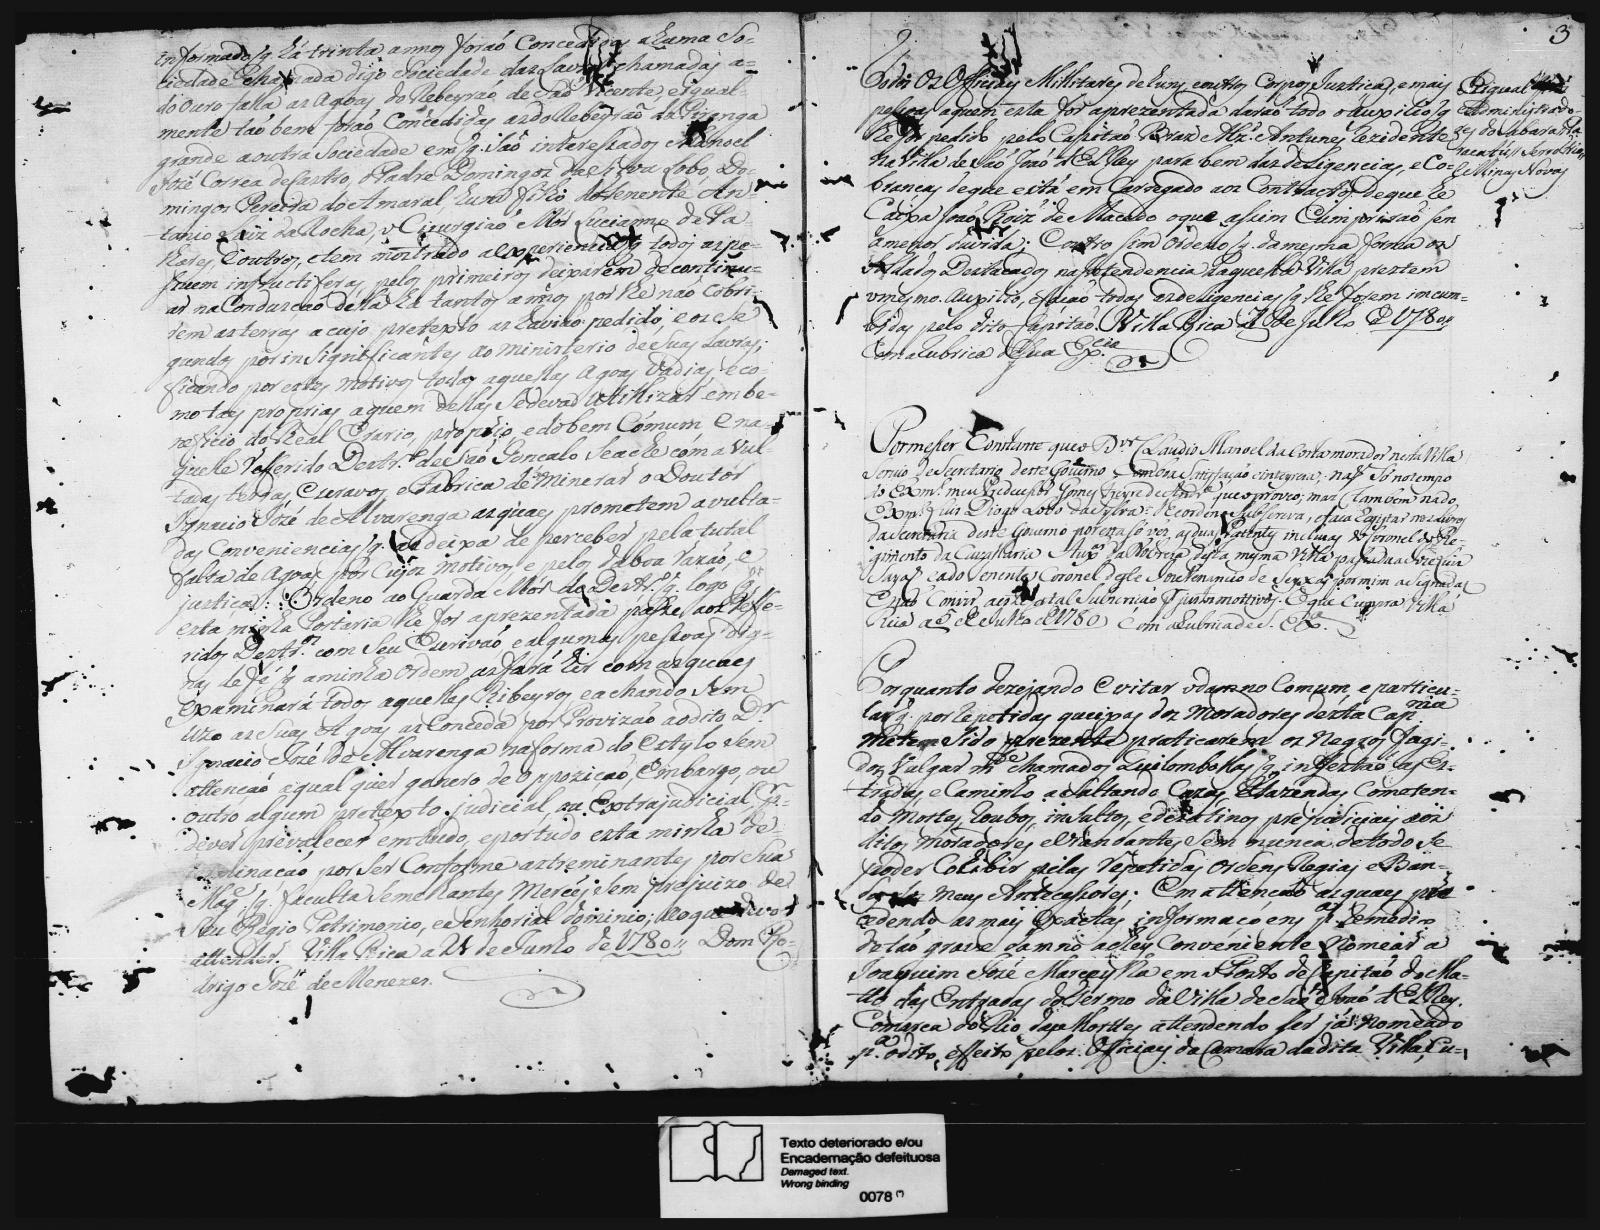 informado q. há trinta annos forão Concedidas a huma So-
ciedade chamada digo Sociedade das Lavras chamadas a-
do Ouro falla as Agoas do Rebeyrão de São Vicente e igual-
mente tão bem forão Concedidas as do Rebeyrão da Piranga
grande a outra Sociedade em q. são interessados Manoel
José Correa de Castro, o Padre Domingos da Silva Lobo, Do-
mingos Pereira do Amaral, hum filho do Tenente An-
tonio Luiz da Rocha, o Cirurgiaõ Mór Luciano de
e outros, e tem mostrado a experiencia q. todos as pe-
infructiferas pelos primeiros deixarem de continu-
ar na Condução della ha tantos annos por lhe não Cobri-
rem as terras a cujo pretexto as havião pedido, e os se-
gundos por insignificantes ao ministerio de suas Lavras;
ficando por estes motivos todas aquellas Agoas vadias, e co-
mo taes proprias a quem dellas Se deva Utilizar em be-
neficio do Real Erario, proprio, e do bem Cómum e na-
quelle Refferido Destr.º de São Gonçalo Se ache com a vul-
tadas terras, Escravos, e Fabrica de Minerar o Doutor
Ignacio Jozé de Alvarenga as quaes promettem avulta-
das Conveniencias q. as deixa de perceber pela total
falta de Agoas, por Cujos motivos, e pelos da boa razão, e
justiça: Ordeno ao Guarda Mór do Destr.º q. logo q.
esta minha Portaria lhe for aprezentada passe aos Reffe-
ridos Destr.os com seu Escrivão, e algumas pessoas dig-
nas de fé, q. a minha Ordem as fará hir com as quaes
Examinará todos aquelles Ribeyros, e achando Sem
uzo as Suas Agoas as Conceda por Provizão ao dito D.r
Ignacio José de Alvarenga na forma do Estylo sem
attenção a qual quer genero de oppozição, Embargo, ou
outro algum pretexto judicial, ou Extrajudicial, p.
dever prevalecer em tudo, e por tudo esta minha de-
terminação, por Ser Conforme as treminantes por Sua
Mag.e q. faculta Semelhantes Mercês, sem prejuizo de
Seu Regio Patrimonio, e senhorial dominio; ao que devo
attender. Villa Rica a 21 de Junho de 1780,, Dom Ro-
drigo José de Menezes.
3
Todos Os Officiaes Millitares de huns, e outros Corpos, Justiças, e mais
pessoas a quem esta for aprezentada darão todo o auxilio q.
lhe for pedido pelo Capitão Braz Alz. Antunes rezidente
na Villa de São João d'ElRey para bem das deligencias, e Co-
branças de que está em Carregado aos Contractos, de que he
Caixa João Roiz' de Macedo o que assim Cumprirão sem
a menor duvida; E outro sim Ordeno q. da mesma forma os
Soldados Destacados na Intendencia daquella Villa prestem
o mesmo Auxilio, e fação todas as deligencias q. lhe forem imcum-
bidas pelo dito Capitão. Villa Rica 1 de Julho de 1780,,
Com a Rubrica de Sua Ex.cia
Por me ser Constante que o D.or Claudio Manoel da Costa morador nesta Villa
Servio de Secretario deste Governo Com satisfação, e inteireza; não Só no tempo
do Ex.mo meu Predecessor Gomes Freyre de Andr.e que o proveo; mas tambem no do
Ex.mo Luis Diogo Lobo da Sylva: Ordeno Subscreva, e faça Registar nos Livros
da Secretaria deste Governo por esta só vez, as duas Patentes incluzas do Coronel do Re-
gimento da Cavallaria Aux.ar da Nobreza desta mesma Villa passada a Joze
e a do Tenente Coronel delle
Villa
Rica a de Julho de 1780 Com a Rubrica de S. Ex.a
Porquanto dezejando Evitar o damno Comum, e particu-
lar q. por repetidas queixas dos Moradores desta Cap.nia
me tem Sido prezente praticarem os Negros fugi-
dos Vulgar m.e chamados Quilombolas q. infestão as Es-
tradas, e Caminhos asaltando Cazas, e Fazendas, Cometen-
do Mortes, roubos, insultos, e desatinos prejudiciais aos
ditos Moradores, e Viandantes, Sem nunca de todo Se
poder Cohibir pelas repetidas Ordens Regias, e Ban-
dos meus Antecessores: Em attenção as quaes pre
cedendo as mais Exactas informaçoens, p.a remedio
de tão grave damno achey Conveniente nomear a
Joaquim José Marcey Rla em o Posto de Capitão do Ma-
tto das Entradas do Termo da Villa de São João d'ElRey.
Cómarca do Rio das Mortes attendendo ser já Nomeado
p.a o dito effeito pelos Officiaes da Camara da dita Villa, Cu-
Administrado-
res do Sabará
Serro frio,
E Minas Novas
Texto deteriorado e/ou
Encadernação defeituosa
Damaged text.
Wrong binding
0078 (*)